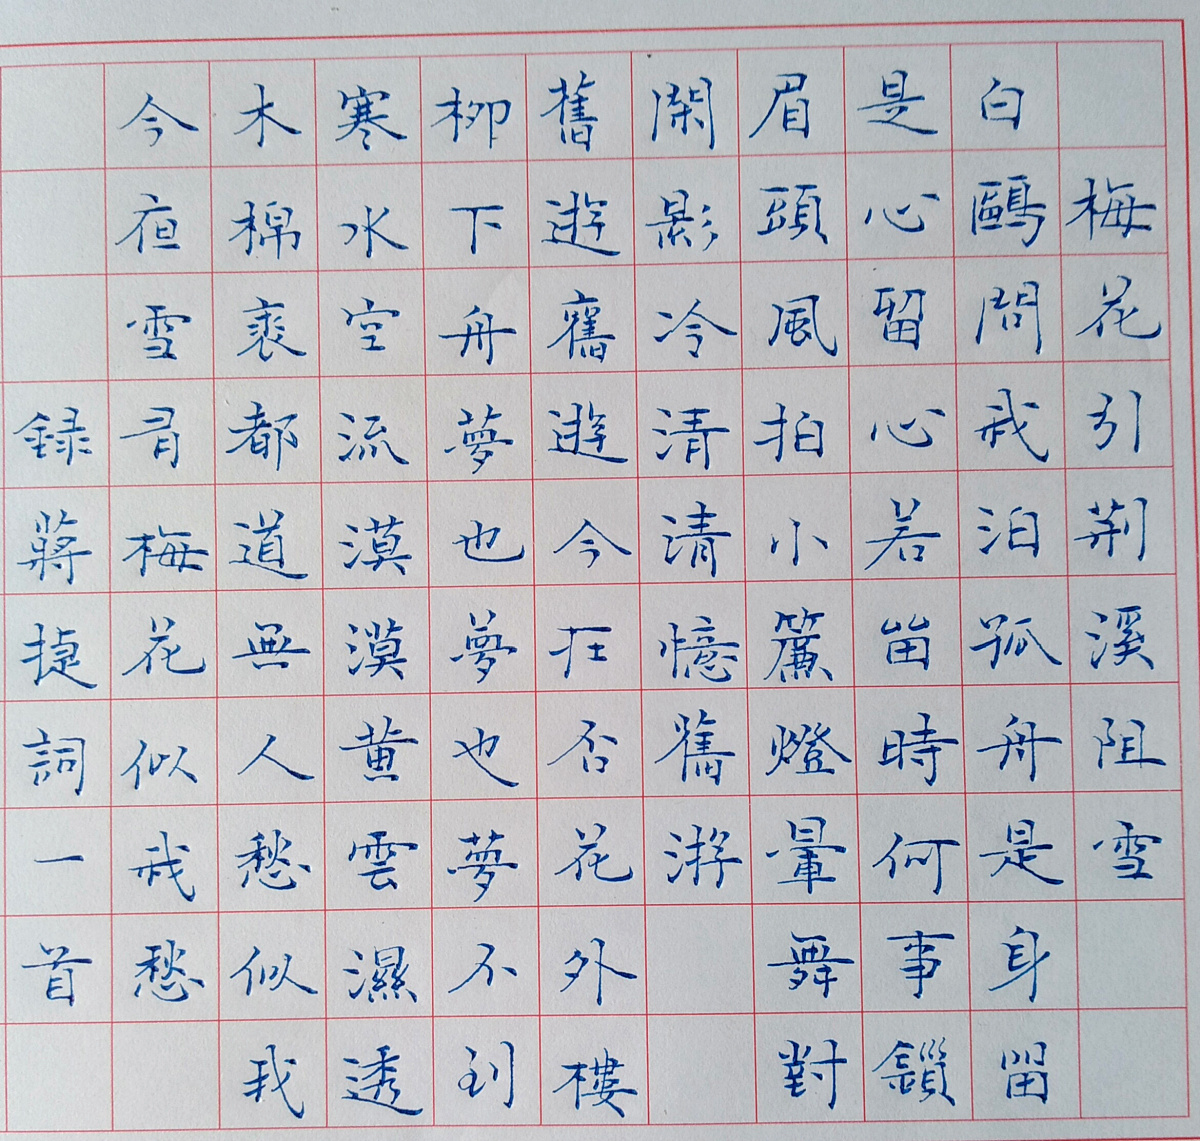 梅花引荆溪阻雪
白鷗問我泊孤舟是身留
是心留心若留時何事鎖
眉頭風拍小簾燈暈舞對
閑影冷清清憶舊游
舊遊舊遊今在否花外樓
柳下舟夢也夢也夢不到
寒水空流漠漠黄雲濕透
木棉裘都道無人愁似我
今夜雪有梅花似我愁
録蔣捷詞一首